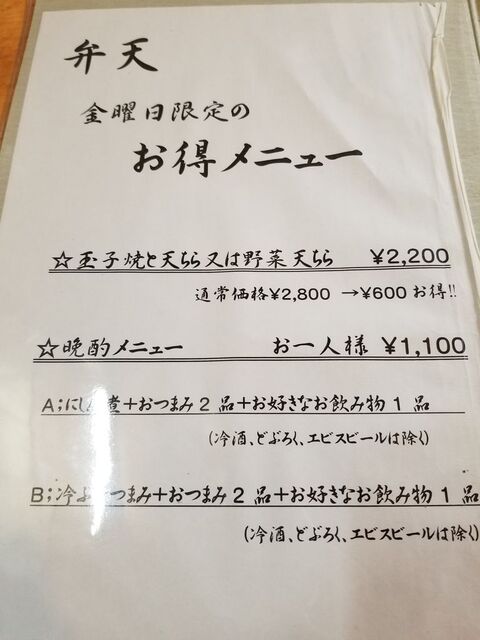 弁天
金曜日限定の
お得メニュー
☆玉子焼と天ちら又は野菜天ちら ¥2,200
通常価格¥2,800 →¥600お得!!
☆晩酌メニュー お一人様 ¥1,100
A;にしん煮+おつまみ2品+お好きなお飲み物1品
(冷酒、どぶろく、エビスビールは除く)
B;冷 つまみ+おつまみ2品+お好きなお飲み物1品
(冷酒、どぶろく、エビスビールは除く)